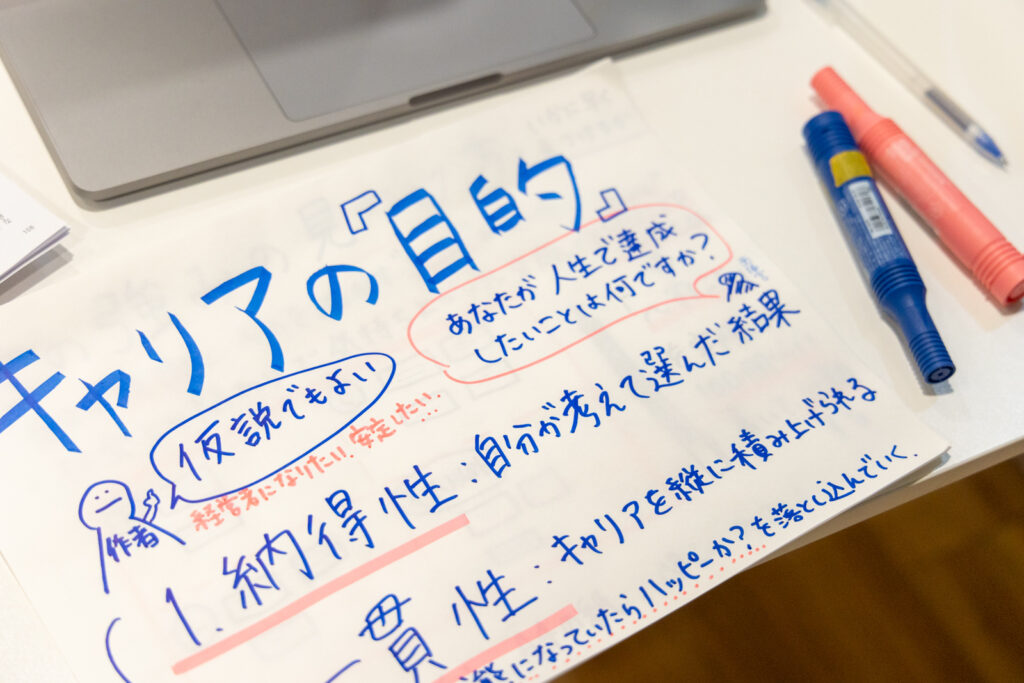 キャリアの『目的』
あなたが人生で達成
したいことは何ですか?
仮説でもよい
経営者になりたい、安定したい…
作者
1. 納得性:自分が考えて選んだ結果
一貫性:キャリアを縦に積み上げられる
になっていたらハッピーか?を落とし込んでいく.